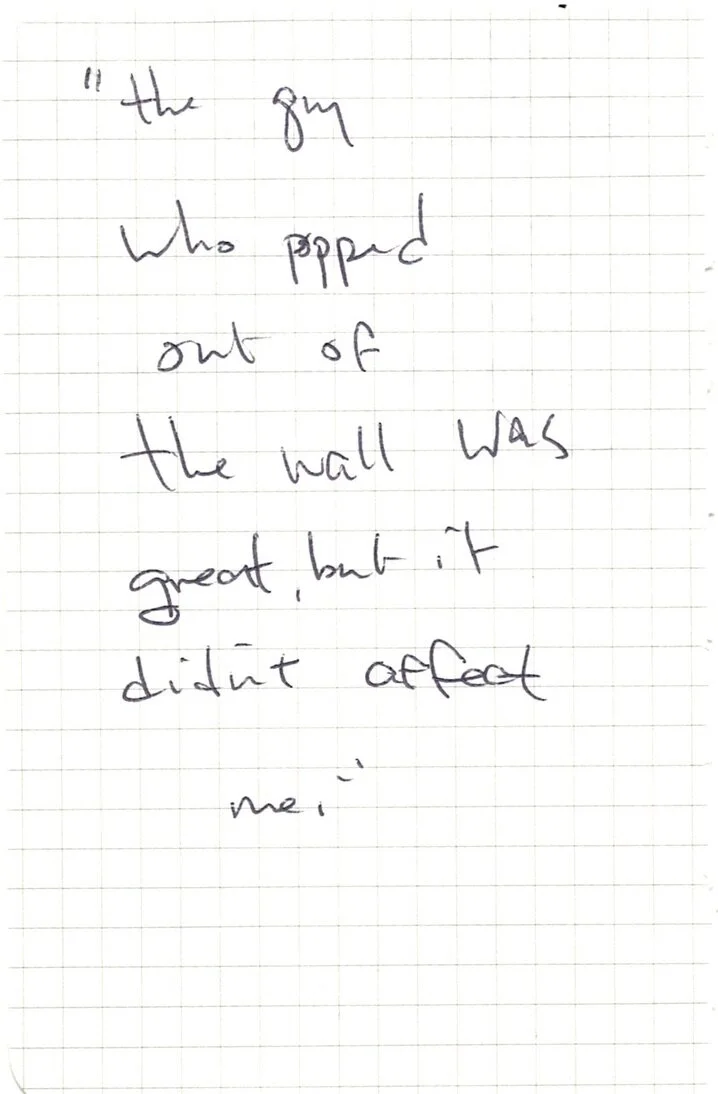 "the guy
who popped
out of
the wall was
great, but it
didn't affect
me."